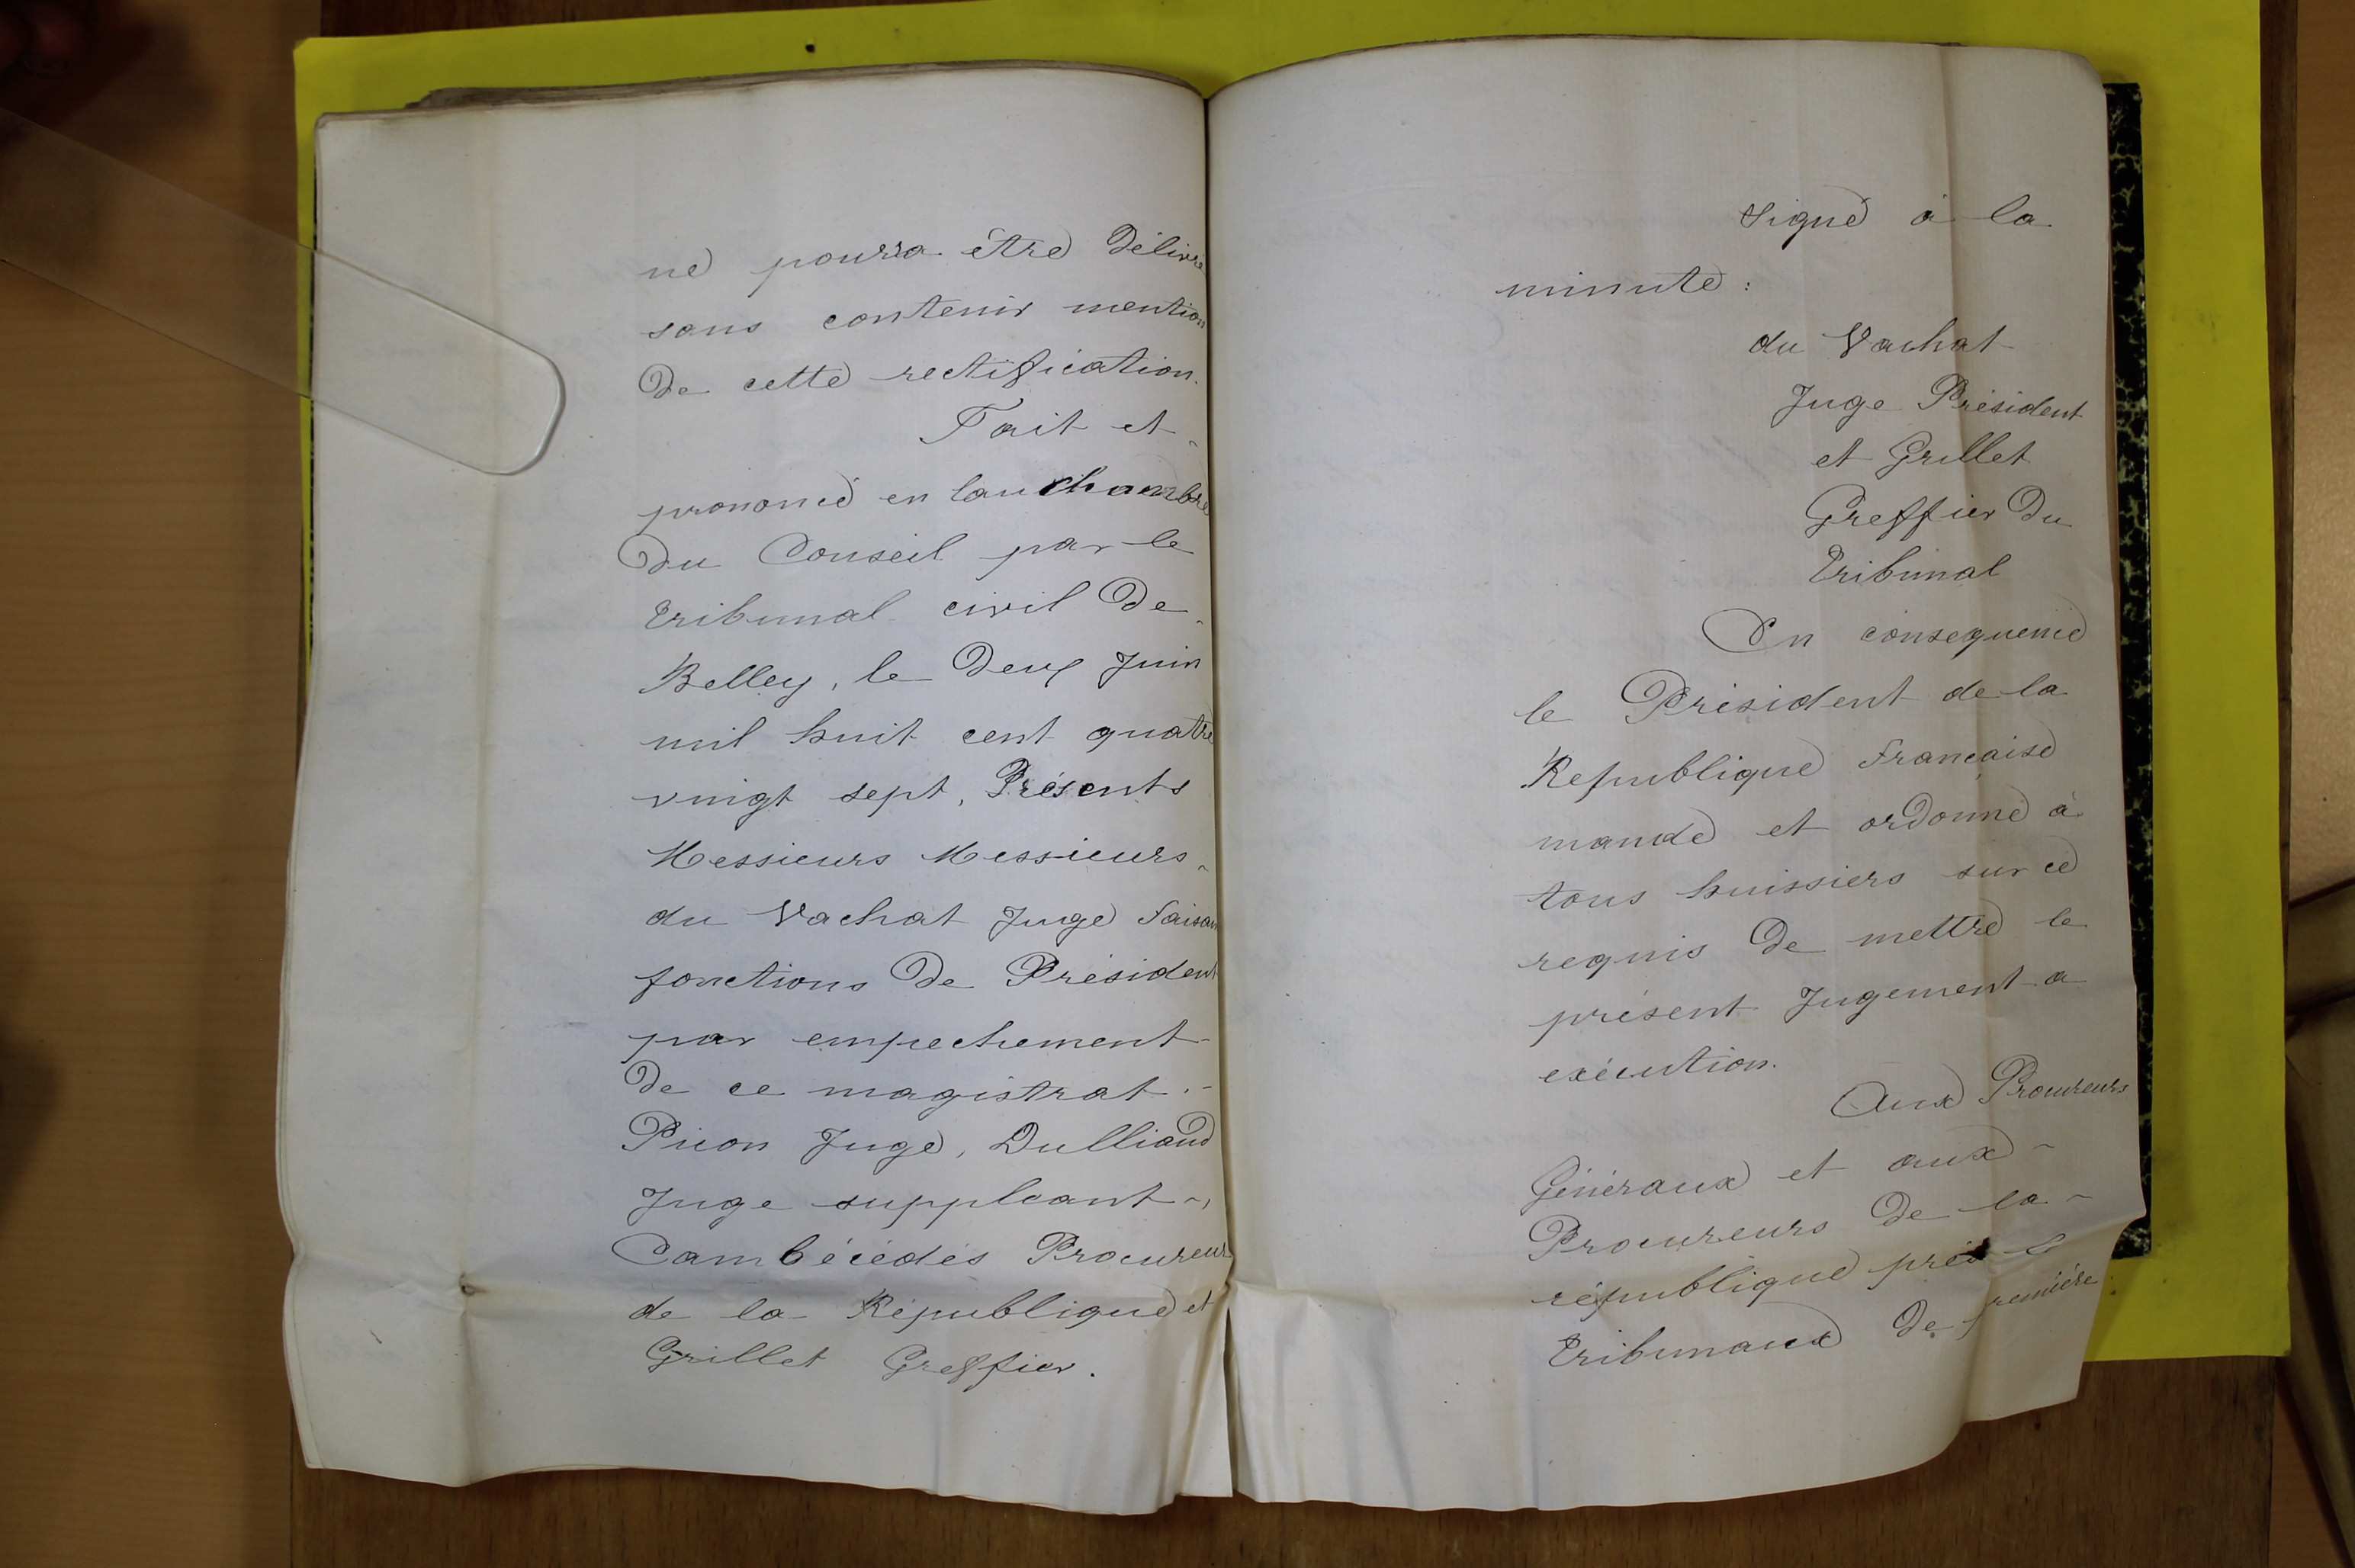 ne pourra être délivré
sans contenir mention
De cette rectification.
Fait et
prononcé en la chambre
Du Conseil par le
Tribunal civil De
Belley, le Deux Juin
mil huit cent quatre
vingt sept, Présents
Messieurs Messieurs
du Vachat Juge faisant
fonctions De Président
par empechement
De ce magistrat.
Picon Juge, Dulliand
Juge suppleant,
Cambécédés Procureur
de la République et
Grillet Greffier.
Signé à la
minute :
du Vachat
Juge Président
et Grillet
Greffier Du
Tribunal
En conséquence
le Président de la
Republique française
mande et ordonne à
tous huissiers sur ce
requis De mettre le
présent Jugement a
exécution.
Aux Procureurs
Généraux et aux
Procureurs De la
république près
Tribunaux De première